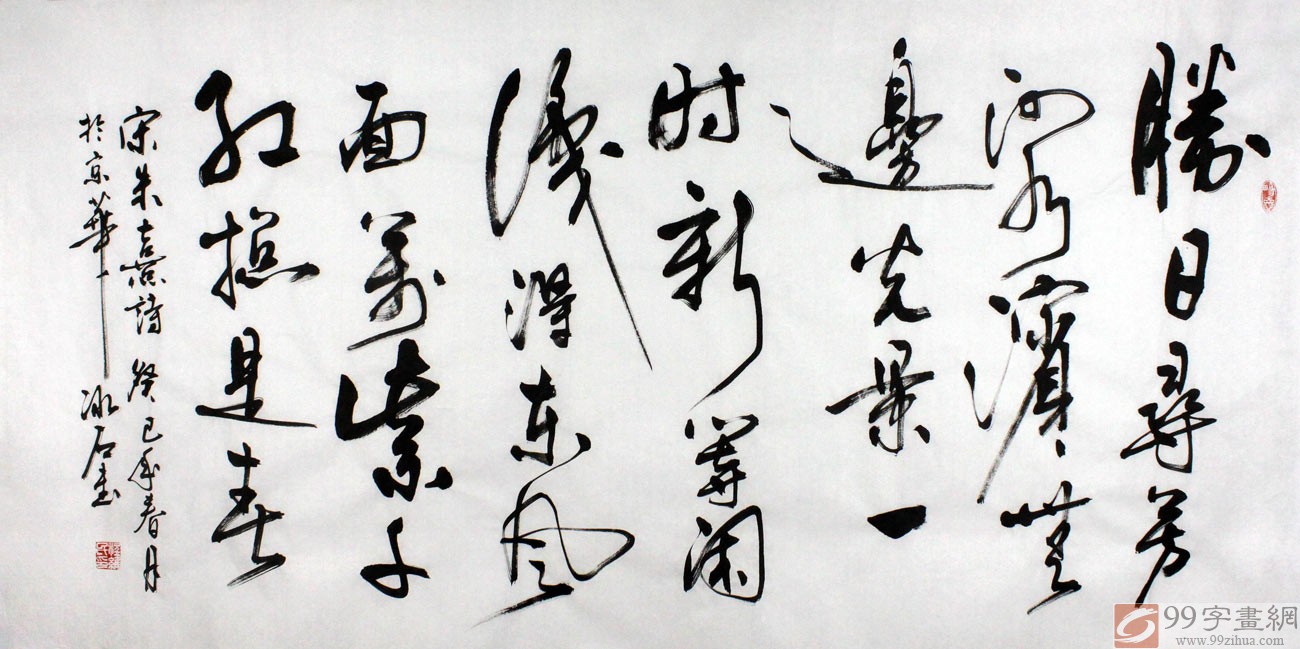 勝日尋芳
泗水濱無
邊光景一
时新等闲
識得东风
面萬紫千
红總是春
宋朱熹詩 癸巳年春月
於京華 冰石書
99字畫網
www.99zihua.com